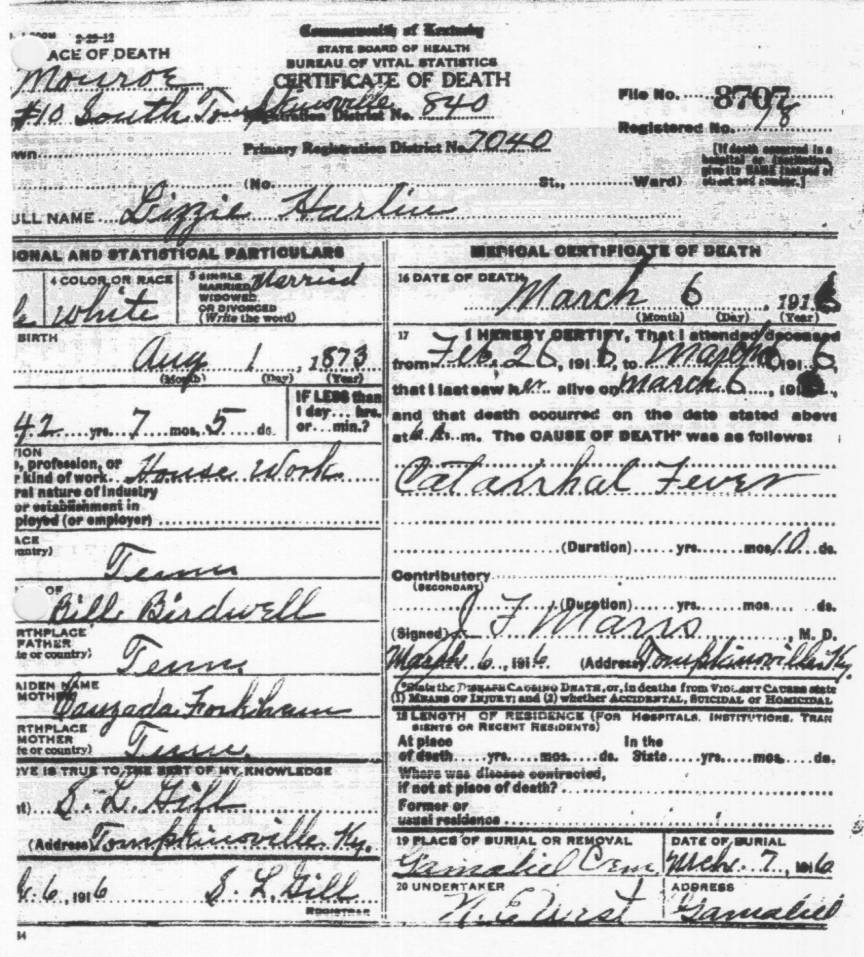 2-23-12
Commonwealth of Kentucky
STATE BOARD OF HEALTH
BUREAU OF VITAL STATISTICS
CERTIFICATE OF DEATH
ACE OF DEATH
Monroe
#10 South Tompkinsville
Registration District No. 840
File No. 8707
Registered No. 18
own
Primary Registration District No. 7040
[If death occurred in a
hospital or institution,
give its NAME instead of
street and number.]
(No. St., Ward)
ULL NAME Lizzie Harlin
ONAL AND STATISTICAL PARTICULARS
4 COLOR OR RACE
white
5 SINGLE
MARRIED
WIDOWED
OR DIVORCED
(Write the word)
Married
BIRTH
Aug 1, 1873
(Month) (Day) (Year)
42 yrs. 7 mos. 5 ds.
IF LESS than
1 day... hrs.
or... min.?
TION
, profession, or
r kind of work House Work
ral nature of industry
or establishment in
ployed (or employer)
ACE
ountry)
Tenn
OF
Bill Birdwell
RTHPLACE
FATHER
te or country)
Tenn.
AIDEN NAME
MOTHER
RTHPLACE
MOTHER
te or country)
Tenn.
OVE IS TRUE TO THE BEST OF MY KNOWLEDGE
t) S. L. Gill
(Address Tompkinsville Ky.
6, 1916 S. L. Gill
REGISTRAR
MEDICAL CERTIFICATE OF DEATH
16 DATE OF DEATH
March 6, 1916
(Month) (Day) (Year)
17 I HEREBY CERTIFY, That I attended deceased
from Feb. 26, 1916, to March 6 1916,
that I last saw her alive on March 6, 1916,
and that death occurred on the date stated above
at m. The CAUSE OF DEATH* was as follows:
Catarrhal Fever
(Duration) yrs. mos. 10 ds.
Contributory
(SECONDARY)
(Duration) yrs. mos. ds.
(Signed) J F Marrs, M. D.
March 6, 1916 (Address) Tompkinsville Ky.
*State the DISEASE CAUSING DEATH, or, in deaths from VIOLENT CAUSES state
(1) MEANS OF INJURY; and (2) whether ACCIDENTAL, SUICIDAL OR HOMICIDAL
18 LENGTH OF RESIDENCE (FOR HOSPITALS, INSTITUTIONS, TRAN
SIENTS OR RECENT RESIDENTS)
At place In the
of death yrs. mos. ds. State yrs. mos. ds.
Where was disease contracted,
if not at place of death?
Former or
usual residence
19 PLACE OF BURIAL OR REMOVAL
Gamaliel Cem
DATE OF BURIAL
Mch. 7, 1916
20 UNDERTAKER
ADDRESS
Gamaliel